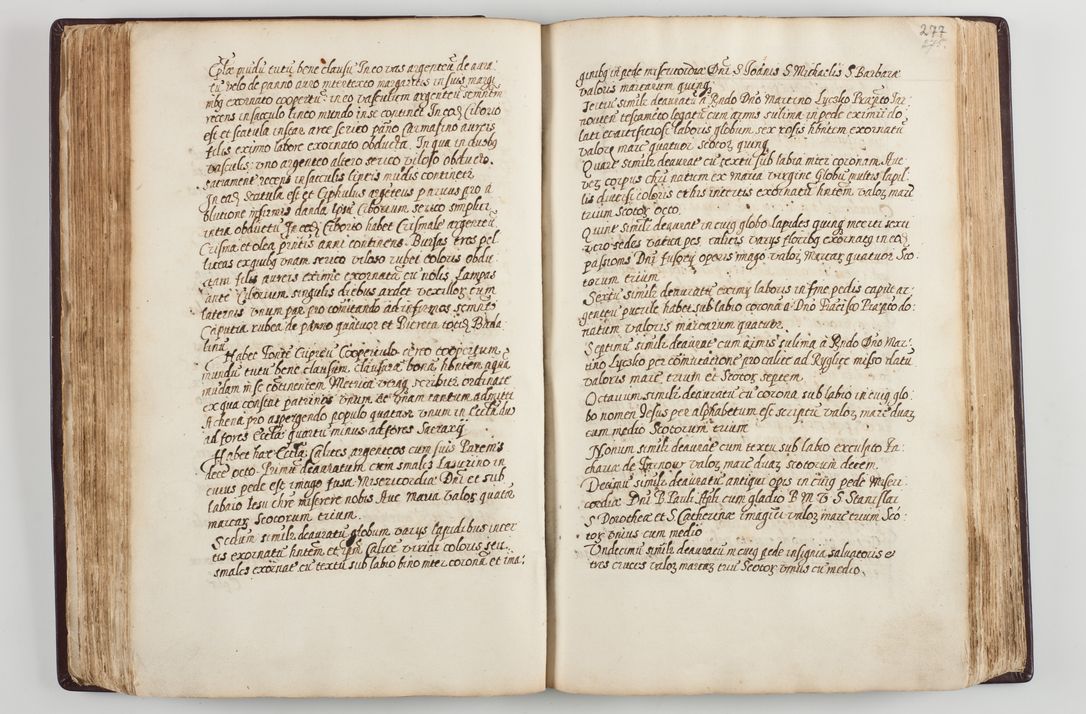 Ecclae mūdū tutū bene clausū In eo vas argenteū de aura
tū velo de panno auro intertexto margaritis in suis margi
nibq exornato coopertū: in eo vasculum argenteū semitem
recens in sacculo linteo mundo inse continet In eo Ciborio
est et scatula inscar arce serico pāno Carmasino aureis
filis eximo labore exornato obducta. In qua in duobq
vasculis: vno argenteo altero serico viloso obducto.
sacrament recens in sacculis linteis mūdis continet
In ead Scatula est et Ciphulus argēteus parvus pro a
blutione infirmis danda Ipm Ciborium serico simplici
intra obductū In eod Ciborio habet Crismale argenteū
Crisma et olea pntis anni continens Bursas tres pel
liceas exquibq vnam serico viloso rubei coloris obdu
ctam filis aureis eximie exornatā cū nolis Lampas
ante Ciborium singulis diebus ardet vexillor cum
laternis vnum par pro comitando ad infirmos semita
Caputia rubea de panno quatuor et
lina
Habet Fontē Cupreū Cooperculo coopertum
mundū tutū bene clausum clausurā bonā hbntem aquā
mūdam in se continentem Metrica veraq scribitur ordinate
ex qua constat patrinos vnum et vnam tantum admitti
Athena pro aspergendo populo quatuor vnum in Ecclia duo
ad fores Eccla quartū minus ad fores Sacrarij
Habet haec Eccla Calices argenteos cum suis Patenis
dece octo Primū deauratum cum smalco Lasurino in
cuius pede est imago fusa Misericordiae Dni et sub
labio Iesu chre miserere nobis Ave Maria valor quatuor
marcar Scotorum trium.
Scdum simile deauratū globum varijs lapidibus inter
tis exornatū hntem et ipm calice viridi coloris seu
smalco exornat cū textu sub labio bino inter corona et ima:
277
276.
ginibq in pede misericordiae Dni S Ioānis S Michaelis S Barbarae
valoris marcarum quinq
Tertiū simile deauratū a Rndo Dno Martino Lyczko Praepto Tar
novien testamēto legatū cum armis sulima in pede eximii do
lati et artificiose laboris globum sex rosis hbntem exornatū
valore marc quatuor scotor quinq
Quarr simile deaurat cū textu sub labia inter coronam Ave
ver corpus chri natum ex maria virgine Globū multis lapil
lis diversi coloris et his intertis exornatū hntem valor marc
trium Scotor octo
Quint simile deaurat in cuiq globo lapides quinq
vitro sedes vatica pes calicis varijs floribq exornatq in eo
passionis Dni fusorij operis imago valor marcar quatuor Sco
torum trium
Sextū simile deauratū eximij laboris in fine pedis caput ar
genteū puerile habet sub labio corona a Dno Frācisco Praepto do
natum valoris marcarum quatuor.
Septimū simile deaurat cum armis sulima a Rndo Dno Mar
tino Lyczko per comutatione pro calice ad Ryglice misso datū
valoris marc trium et Scotor septem
Octavum simile deauratū cū corona sub labio in cuiq glo
bo nomen Iesus per alphabetum est scriptū valor marc duar
cum medio Scotorum trium
Nonum simile deaurat cum textu sub labio exculpto Za
charias de Tarnow valor marc duar scotorum decem.
Decimū simile deauratū antiqui opis in cuiq pede Miseri
cordiae Dni B Pauli Apli cum gladio B M V S Stanislai
S Dorotheae et S Catherinae imagies valor marc trium Sco
tor vnius cum medio
Vndecimū simile deauratum in cuiq pede insignia salvatoris e
tres cruces valor marcar triū Scotor vnius cū medio.